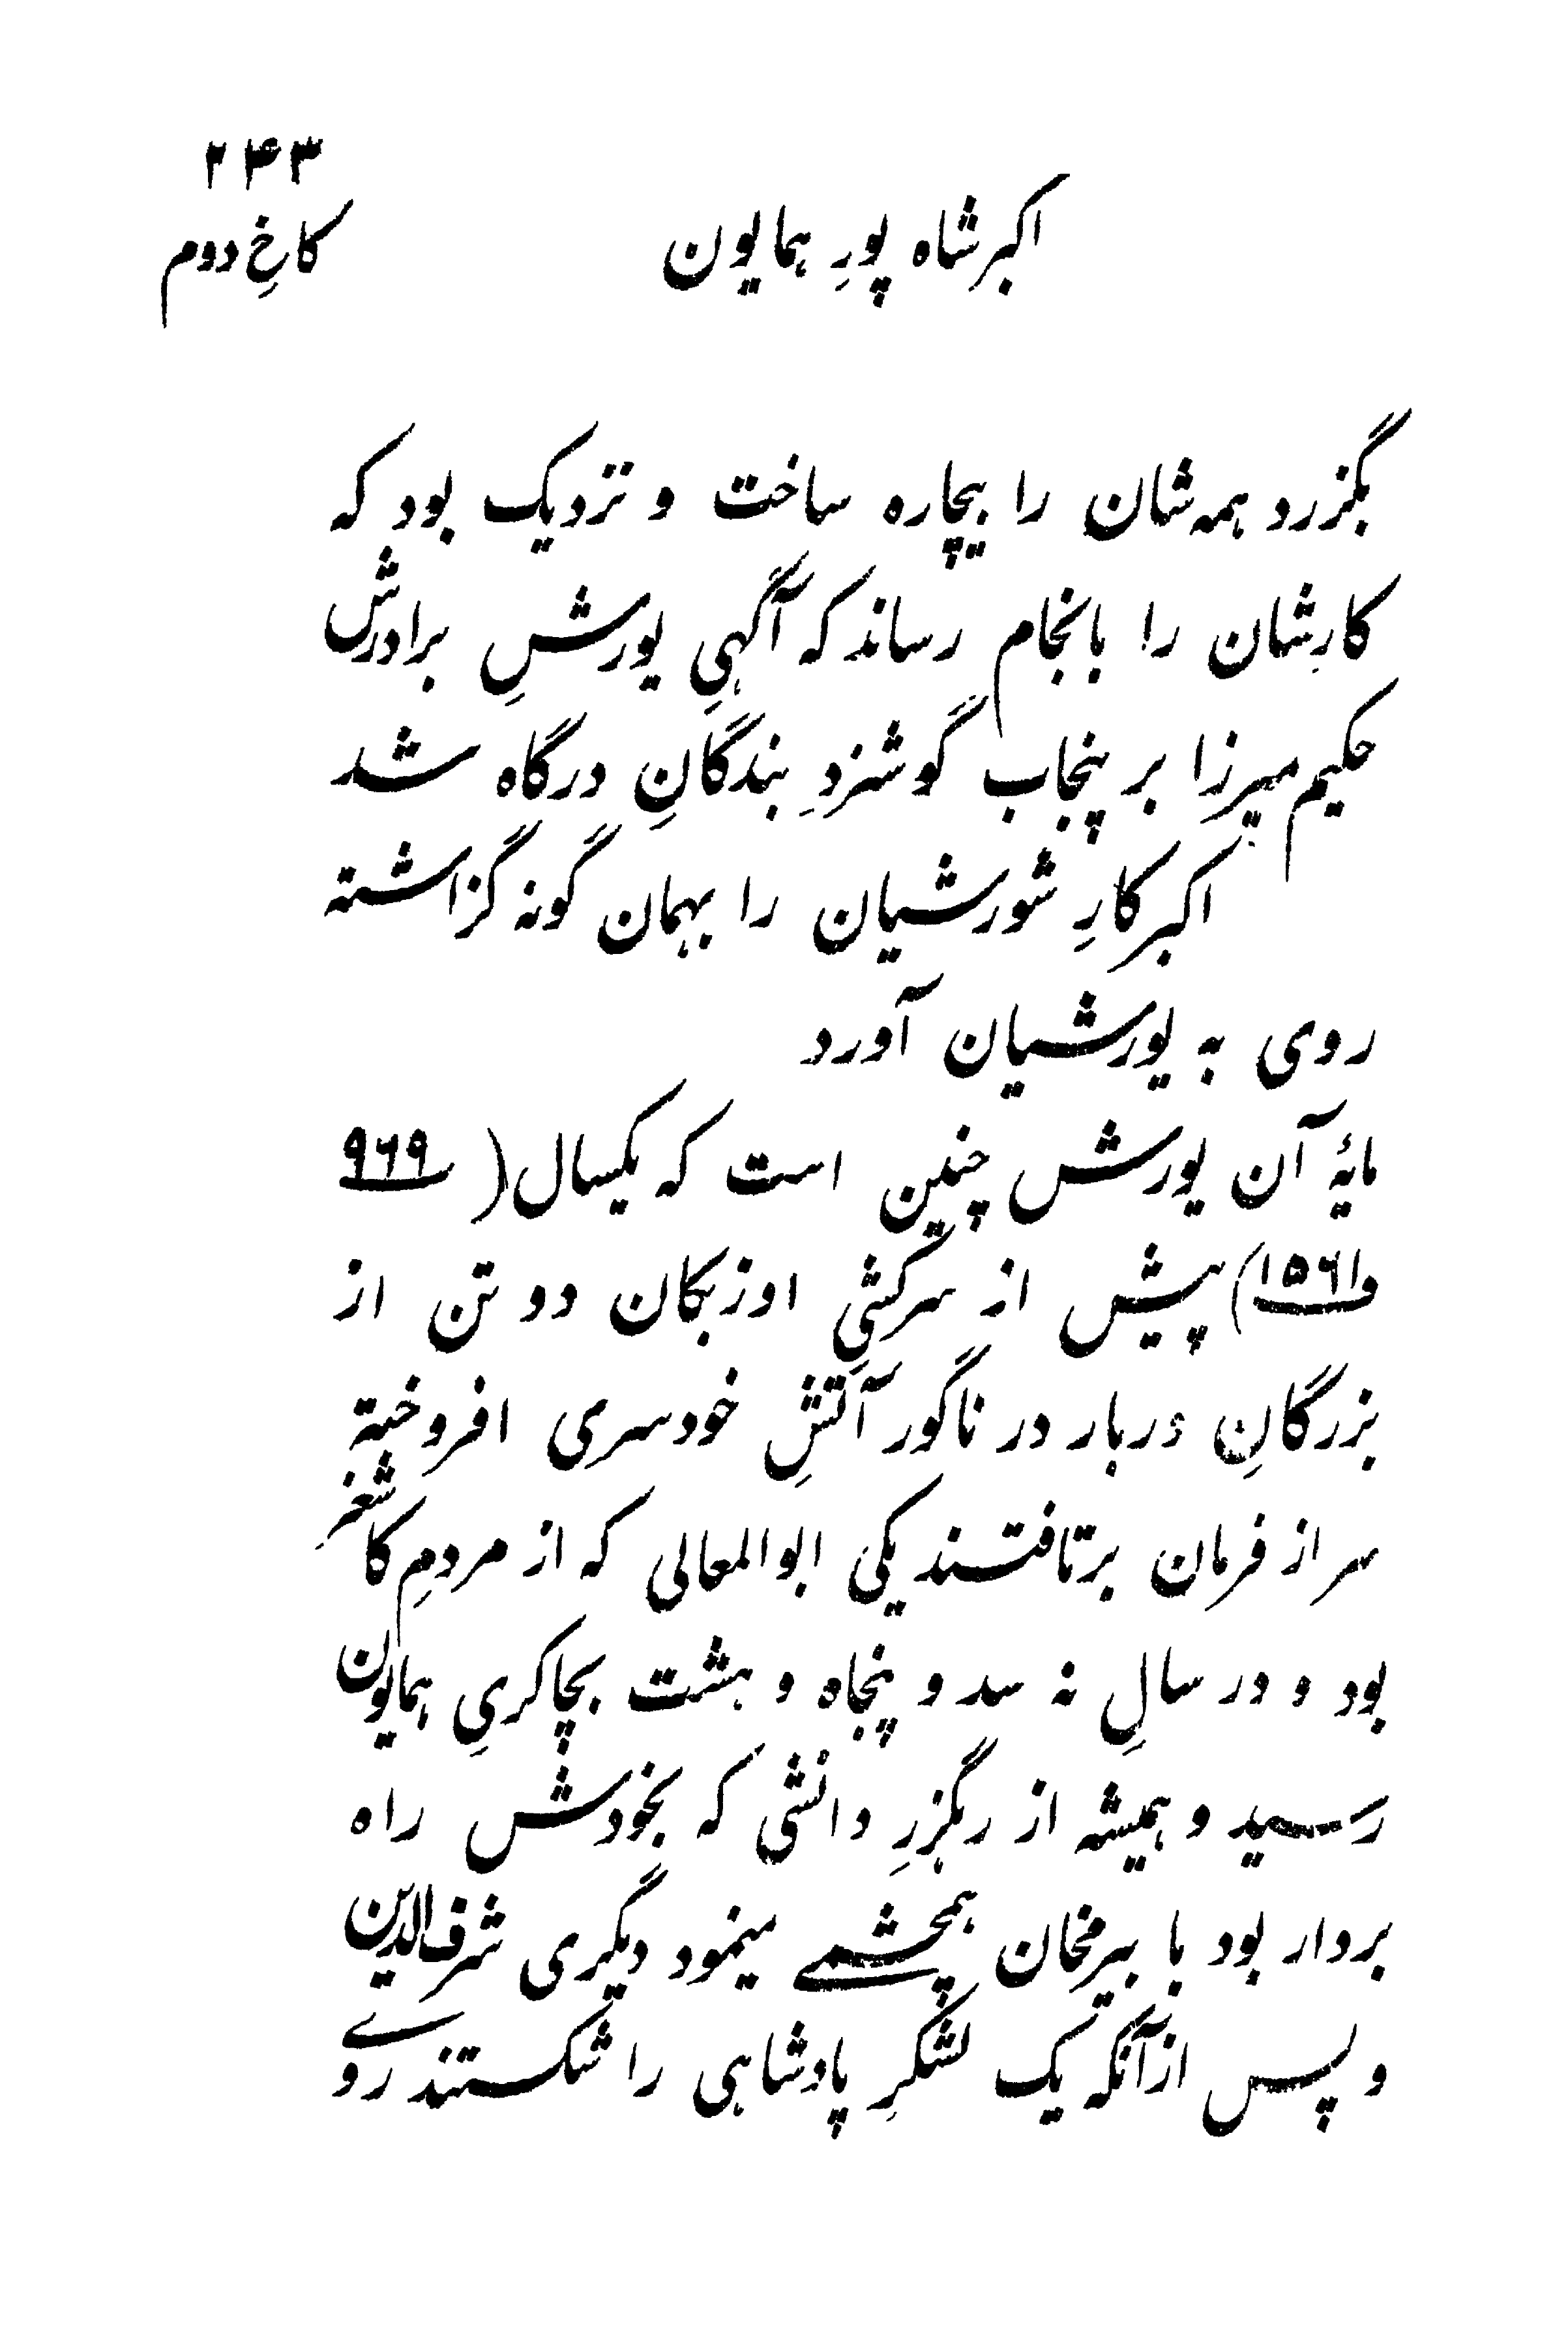 ۲۴۳
اکبرشاه پورِ همایون
کاخِ دوم
بگزرد همه‌شان را بیچاره ساخت و نزدیک بود که
کارِشان را بانجام رساند که آگهیِ یورشِ برادرش
حکیم میرزا بر پنجاب گوشزدِ بندگانِ درگاه شد
اکبر کارِ شورشیان را بهمان گونه گزاشته
روی به یورشیان آورد
مایهٔ آن یورش چنین است که یکسال (۹۶۹
و ۱۵۶۱) پیش از سرکشیِ اوزبکان دو تن از
بزرگانِ دربار در ناگور آتشِ خودسری افروخته
سر از فرمان برتافتند یکی ابوالمعالی که از مردمِ کاشغرِ
بود و در سالِ نه سد و پنجاه و هشت بچاکریِ همایون
رسید و همیشه از رهگزرِ دانشی که بخودش راه
بردار بود با بیرمخان همچشمے مینمود دیگری شرف‌الدین
و پس ازآنکه یک لشکرِ پادشاهی را شکستند روے